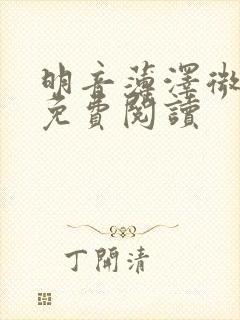 明音薄澤微
免費閱讀
丁開清